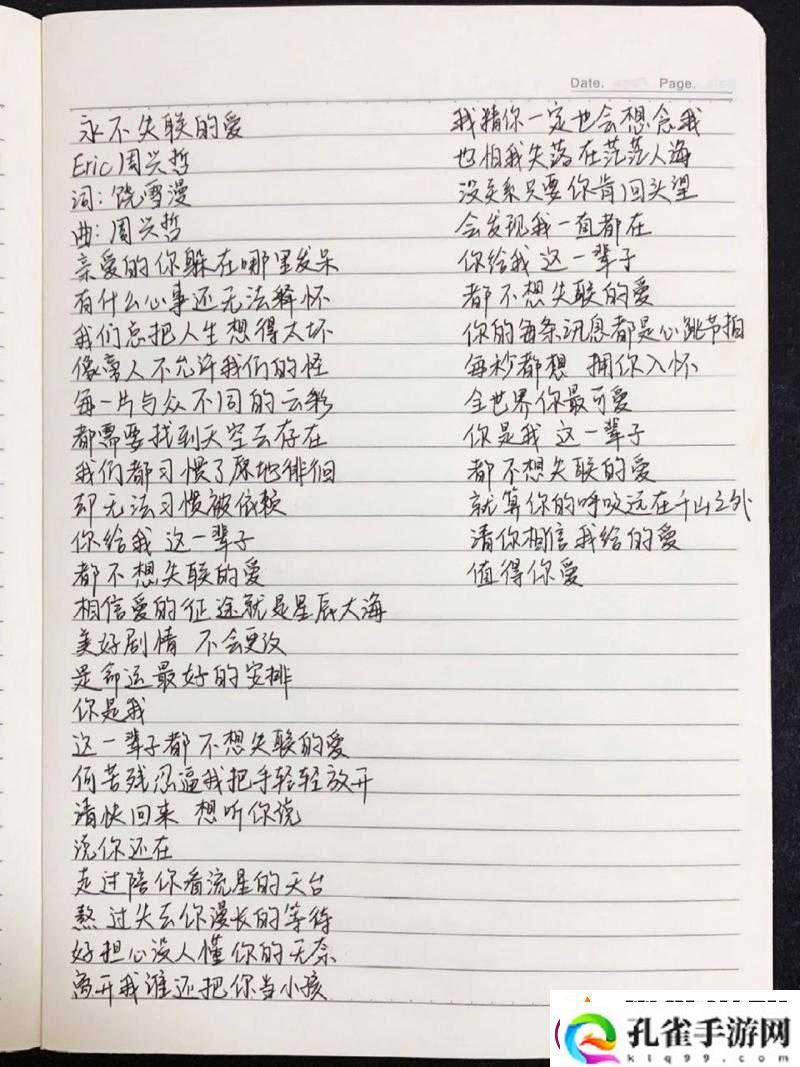 Date.
Page.
永不失联的爱
Eric周兴哲
词:饶雪漫
曲:周兴哲
亲爱的你躲在哪里发呆
有什么心事还无法释怀
我们总把人生想得太坏
像旁人不允许我们的怪
每一片与众不同的云彩
都需要找到天空去存在
我们都习惯了原地徘徊
却无法习惯被依赖
你给我 这一辈子
都不想失联的爱
相信爱的征途就是星辰大海
美好剧情 不会更改
是命运最好的安排
你是我
这一辈子都不想失联的爱
何苦残忍逼我把手轻轻放开
请快回来 想听你说
说你还在
走过陪你看流星的天台
熬过失去你漫长的等待
好担心没人懂你的无奈
离开我谁还把你当小孩
我猜你一定也会想念我
也怕我失落在茫茫人海
没关系只要你肯回头望
会发现我一直都在
你给我 这一辈子
都不想失联的爱
你的每条讯息都是心跳节拍
每秒都想 拥你入怀
全世界你最可爱
你是我 这一辈子
都不想失联的爱
就算你的呼吸远在千山之外
请你相信我给的爱
值得你爱
孔雀手游网
klq99.com